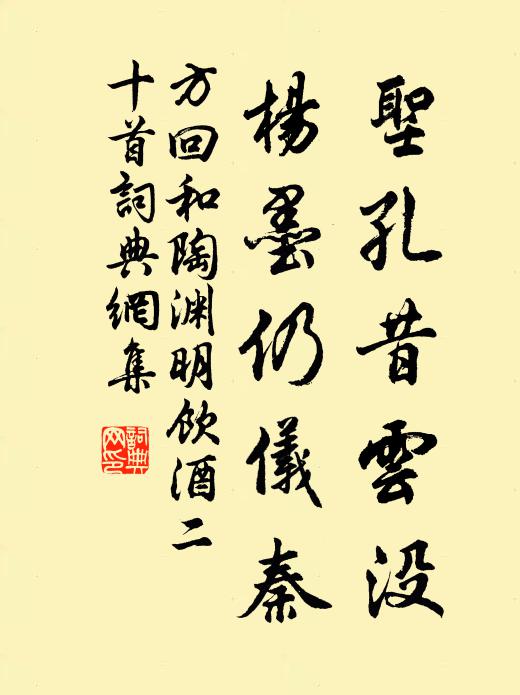 聖孔昔雲没
楊墨仍儀秦
方回和陶渊明飲酒二
十首詞典網集
詞典
网印